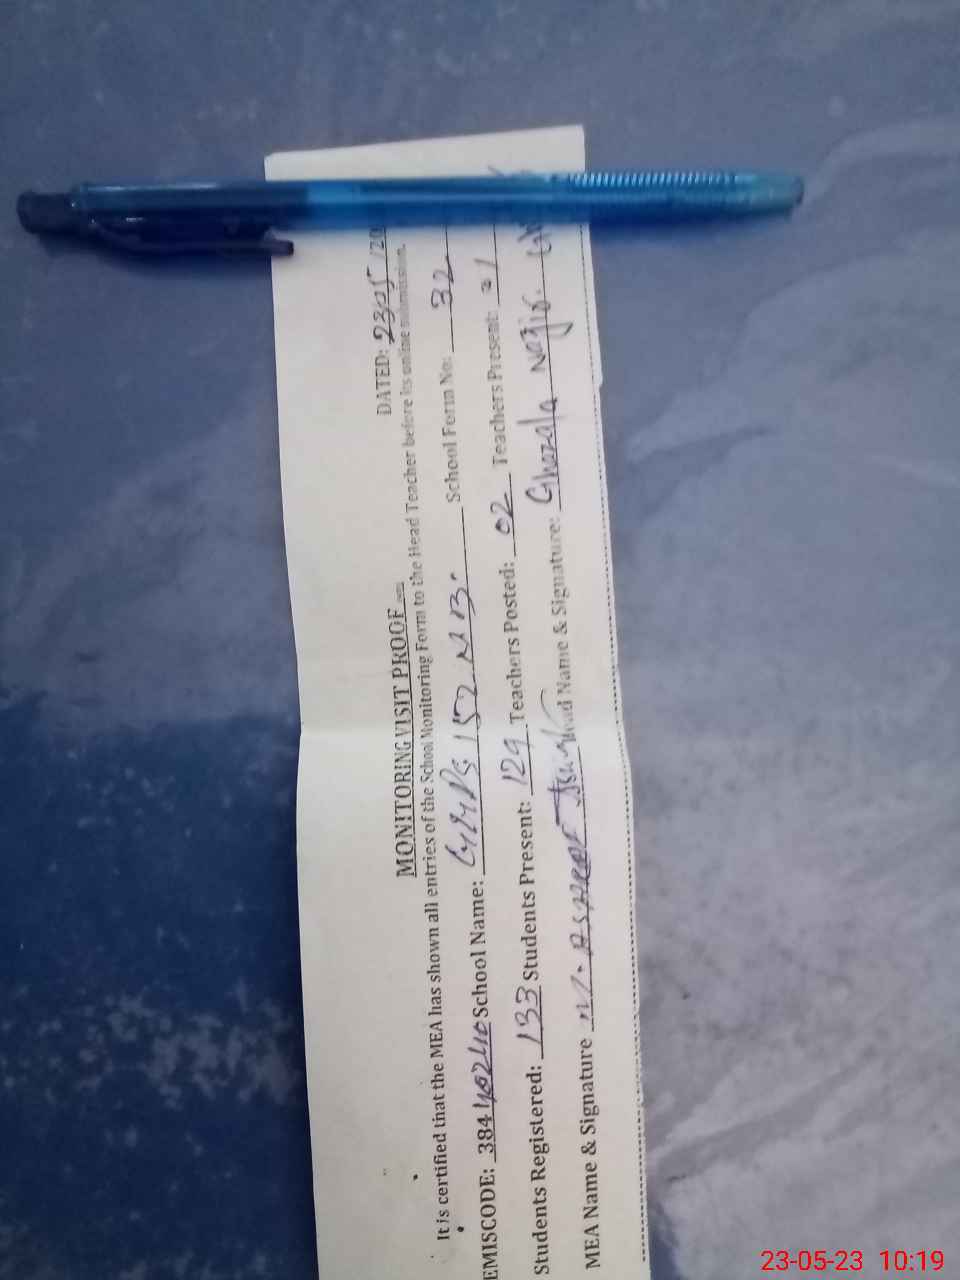 MONITORING VISIT PROOF
DATED: 23/05/20
It is certified that the MEA has shown all entries of the School Monitoring Form to the Head Teacher before its online submission.
EMISCODE: 38440240 School Name: GMPS 152 NB. School Form No: 32
Students Registered: 133 Students Present: 129 Teachers Posted: 02 Teachers Present: 01
MEA Name & Signature M. ASHRAF Head Name & Signature: Ghazala
23-05-23 10:19